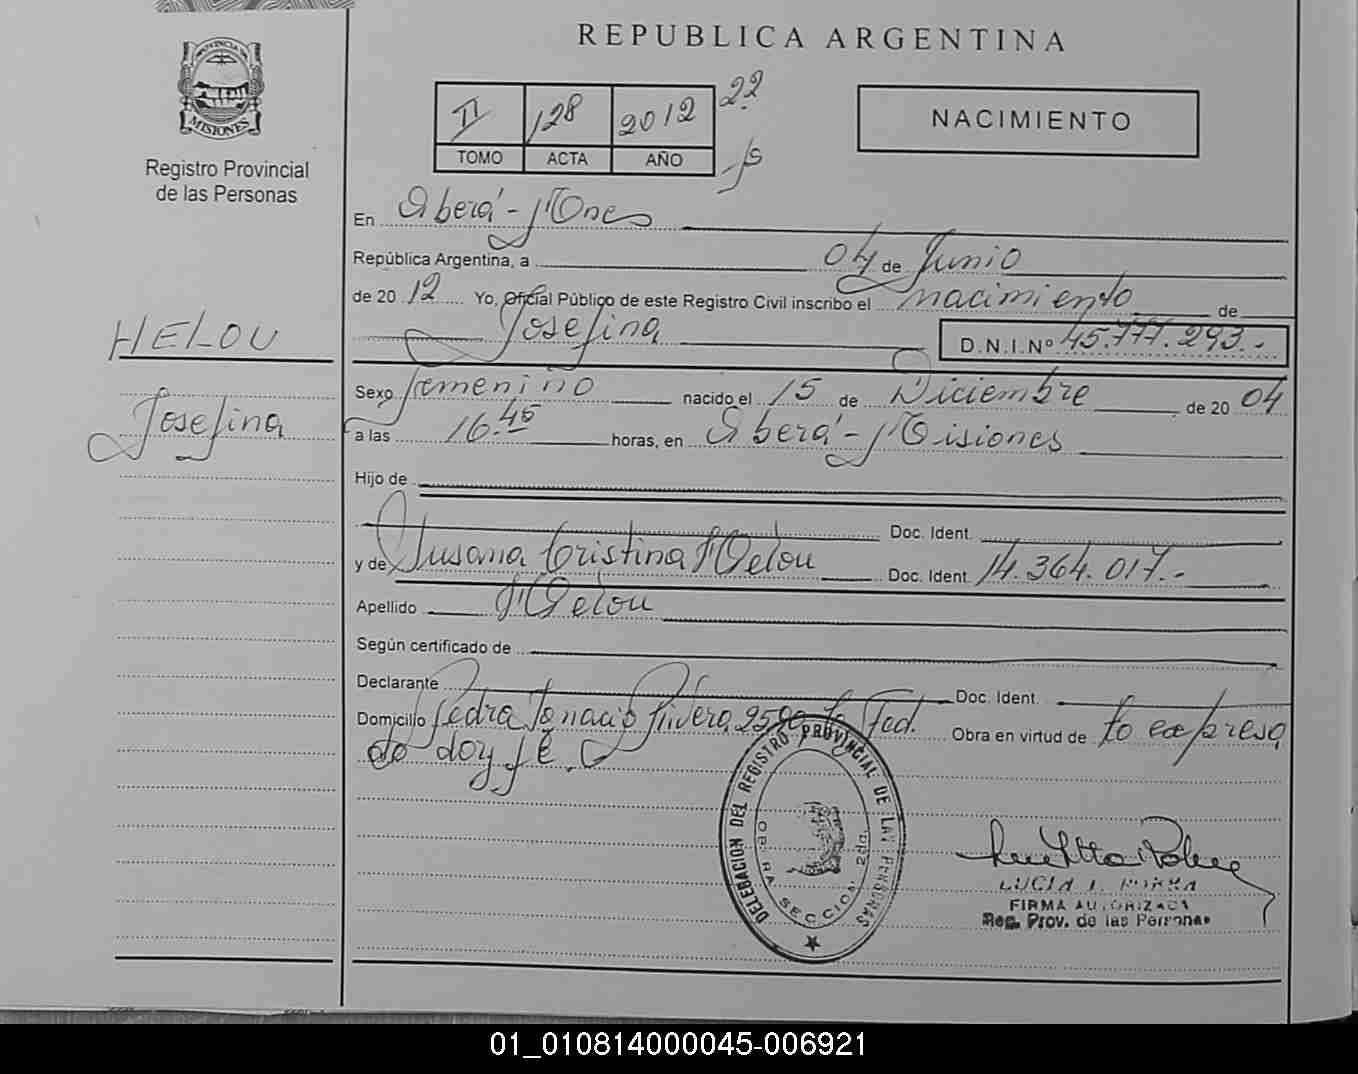 REPUBLICA ARGENTINA
MISIONES
Registro Provincial
de las Personas
II 128 2012 22
TOMO ACTA AÑO
NACIMIENTO
En Oberá - M'Ones
República Argentina, a 04 de Junio
de 20 12 Yo, Oficial Público de este Registro Civil inscribo el nacimiento de
HELOU
Josefina
D.N.I.Nº 45.777.293.-
Sexo femenino nacido el 15 de Diciembre de 20 04
Josefina
a las 16.45 horas, en Oberá - Misiones
Hijo de
Doc. Ident.
y de Susana Cristina Helou Doc. Ident. 14.364.017.-
Apellido Helou
Según certificado de
Declarante Doc. Ident.
Domicilio Pedra Ignacio Rivera 2590 Cap. Fed. Obra en virtud de lo expresa
do doy fé.
DELEGACION DEL REGISTRO PROVINCIAL DE LAS PERSONAS
OBERA SECCION 2da.
FIRMA AUTORIZADA
Reg. Prov. de las Personas
01_010814000045-006921